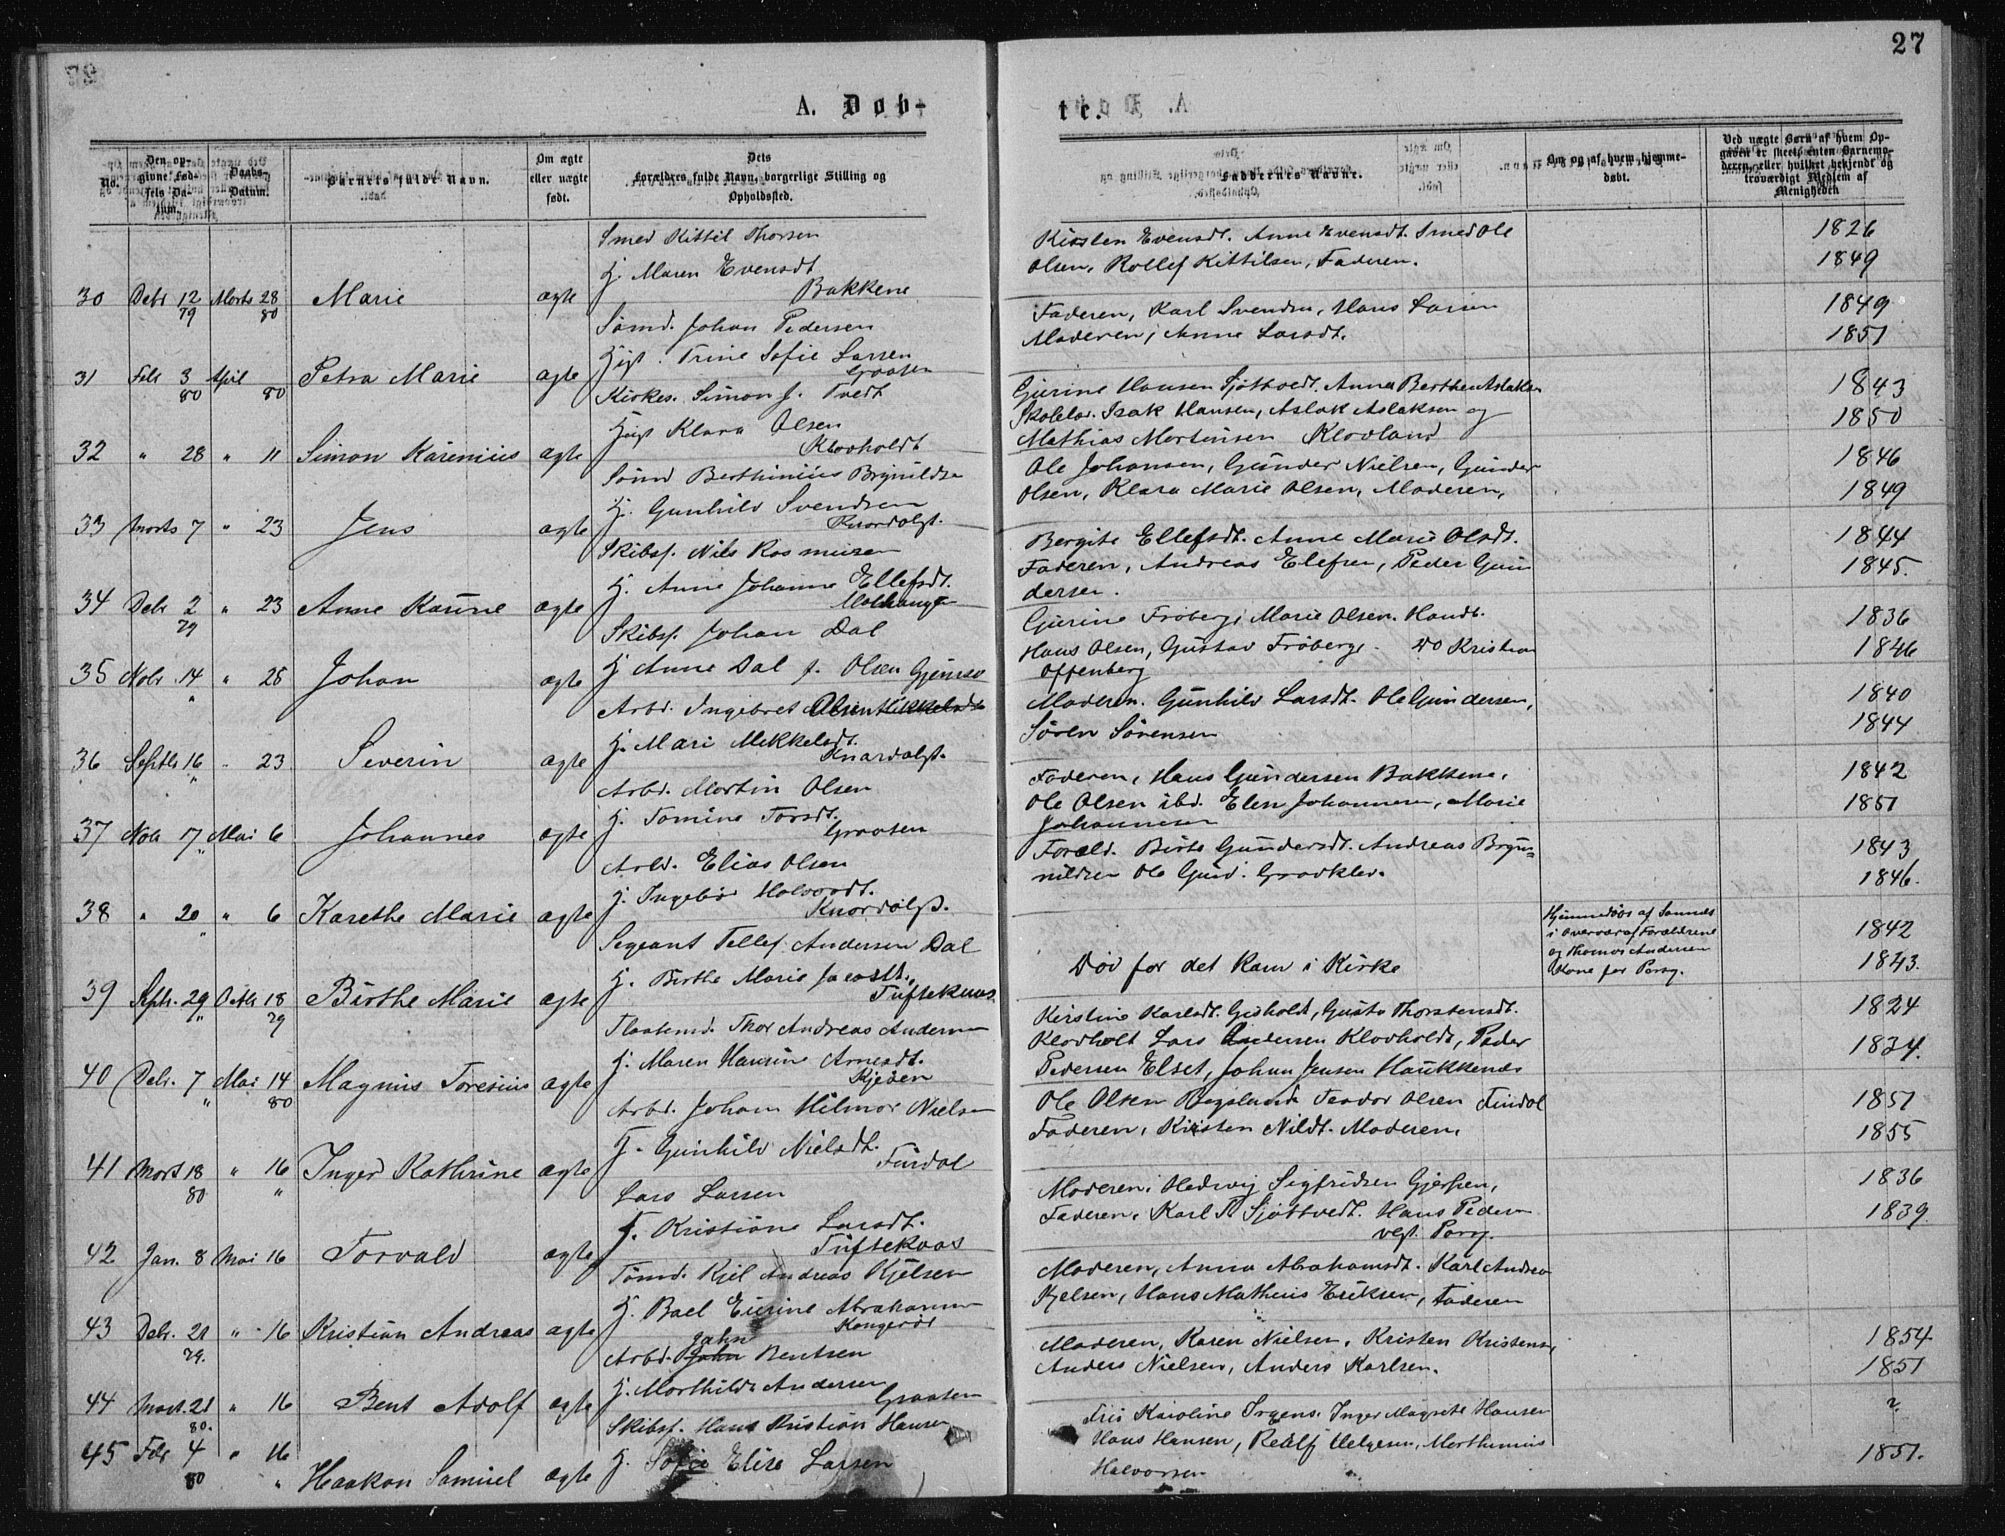 27
A. Døb-
te.
No.
Den opgivne Fødsels Datum.
Daabs-Datum.
Barnets fulde Navn.
Om ægte eller uægte født.
Dets Forældres fulde Navn, borgerlige Stilling og Opholdssted.
Faddernes Navne.
Om og af hvem hjemmedøbt.
Ved uægte Børn af hvem Opgaven er skeet, enten Barnemoderen, eller hvilket bekjendt og troværdigt Medlem af Menigheden
Smed Kittil Thorsen
H. Maren Evensdt
30 Debr 12 79 Marts 28 80 Marie ægte Bakkene
Kirsten Evensdt. Anne Evensdt. Smed Ole
Olsen, Rollef Kittilsen, Faderen.
1826
1849
Sømd. Johan Pedersen
Hust. Trine Sofie Larsen
31 Febr 3 80 April 80 Petra Marie ægte Graaten
Faderen, Karl Svendsen, Hans Larsen
Moderen, Anne Larsdt.
1849
1851
Kirkes. Simon J. Tvedt
Hust Klara Olsen
32 " 28 " 11 Simon Karenius ægte Klovholdt
Gurine Hansen Sjøtvedt. Anna Berthea Aslaksen
Skolelær. Isak Hansen, Aslak Aslaksen og
Mathias Mortensen Klovland
1843
1850
Sømd Berthinius Brynildsen
H. Gunhild Svendsen
33 Marts 7 " 23 Jens ægte Knardalst.
Ole Johansen, Gunder Nielsen, Gunder
Olsen, Klara Marie Olsen, Moderen,
1846
1849
Skibsf. Nils Rasmusen
H. Anne Johanne Ellefsdt.
34 Debr 2 79 " 23 Anne Kaurine ægte
Bergite Ellefsdt. Anne Marie Olsdt.
Faderen, Andreas Elefsen, Peder Gun
dersen.
1844
1845.
Skibsf. Johan Dal
35 Nobr. 14 " " 28 Johan ægte H Anne Dal f. Olsen Gjemsø
Gurine Frøberg, Marie Olsen. Handt.
Hans Olsen, Gustav Frøberg. Do Kristian
Offenberg
1836
1846
Arbd. Ingebret Olsen Mikkelsdt
H. Mari Mikkelsdt.
36 Septbr 16 " " 23 Severin ægte Knardalst.
Moderen. Gunhild Larsdt. Ole Gundersen,
Søren Sørensen
1840
1844
Arbd. Martin Olsen
H. Tomine Torsdt.
37 Nobr 17 " Mai 6 Johannes ægte Graaten
Faderen, Hans Gundersen Bakkene,
Ole Olsen ibd. Elen Johannesen, Marie
Johannesen
1842
1851
Arbd. Elias Olsen
H. Ingebor Halvordt.
38 " 20 " " 6 Karethe Marie ægte Knardalst.
Foræld. Birte Gundersdt. Andreas Bryn=
nildsen Ole Gund. Graaklev.
1843
1846.
Segeant Tellef Andersen Dal
H. Birthe Marie Jacobsdt.,
39 Sptb. 29 " Octbr 18 79 Birthe Marie ægte Tuftekaas
Død for det kom i Kirke
Hjemmedøbt af Sannes
i Overvær af Forældrene
og Thomas Andersen
Kone for Porsg.
1842
1843.
Flaatemd. Thor Andreas Andersen
H. Maren Hansine Arnesdt.
40 Debr. 7 " Mai 14 80 Magnus Toresius ægte Kjeden
Kirstine Karlsdt. Gisholdt, Gusta Thorstensdt.
Klovholt Lars Andersen Klovholdt, Peder
Pedersen Elset, Johan Jensen Haukkenes
1824
1834.
Arbd. Johan Hilmar Nielsen
H. Gunhild Nielsdt.
41 Marts 18 80 " 16 " Inger Kathrine ægte Findal
Ole Olsen Teodor Olsen Findal
Faderen, Kirsten Nildt. Moderen,
1851
1855
Lars Larsen
H. Kristiane Larsdt.
42 Jan. 8 Mai 16 Torvald ægte Tuftekaas
Moderen, Hedvig Sigfridsen Gjersen,
Faderen, Karl Sjøttvedt. Hans Pedersen
vest. Porsg.
1836
1839.
Tømd. Kjel Andreas Kjelsen
H. Bael Eurine Abrahamsen
43 Debr. 21 79. " 16 Kristian Andreas ægte Kongerød
Moderen, Anna Abrahamsdt. Karl Andrea
Kjelsen, Hans Mathius Eriksen, Faderen
Jahn
Arbd. John Bentsen
H. Marthilde Andersen
44 Mart. 21 80. " 16 Bent Adolf ægte Graaten
Moderen, Karen Nielsen, Kristen Kristensen,
Anders Nielsen, Anders Karlsen.
1854
1851
Skibsf. Hans Kristian Hansen
45 Febr 4 80 " 16 " Haakon Samuel ægte H. Sofie Elise Larsen
Karoline Inger Magrete Hansen
Hans Hansen, Helgesen, Marthinius
Halvorsen
?
1851.